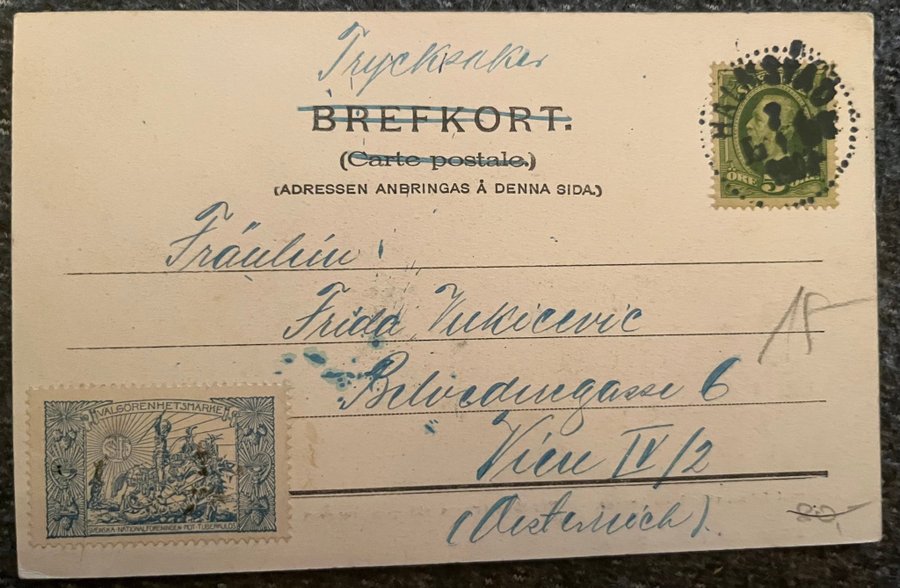 Trycksaker
BREFKORT.
(Carte postale.)
(ADRESSEN ANBRINGAS Å DENNA SIDA.)
Fräulein
Frida Vukicevic
Belvederegasse 6
Wien IV/2
(Oesterreich).
VÄLGÖRENHETSMÄRKE
SVENSKA NATIONALFÖRENINGEN MOT TUBERKULOS
ÖRE 5